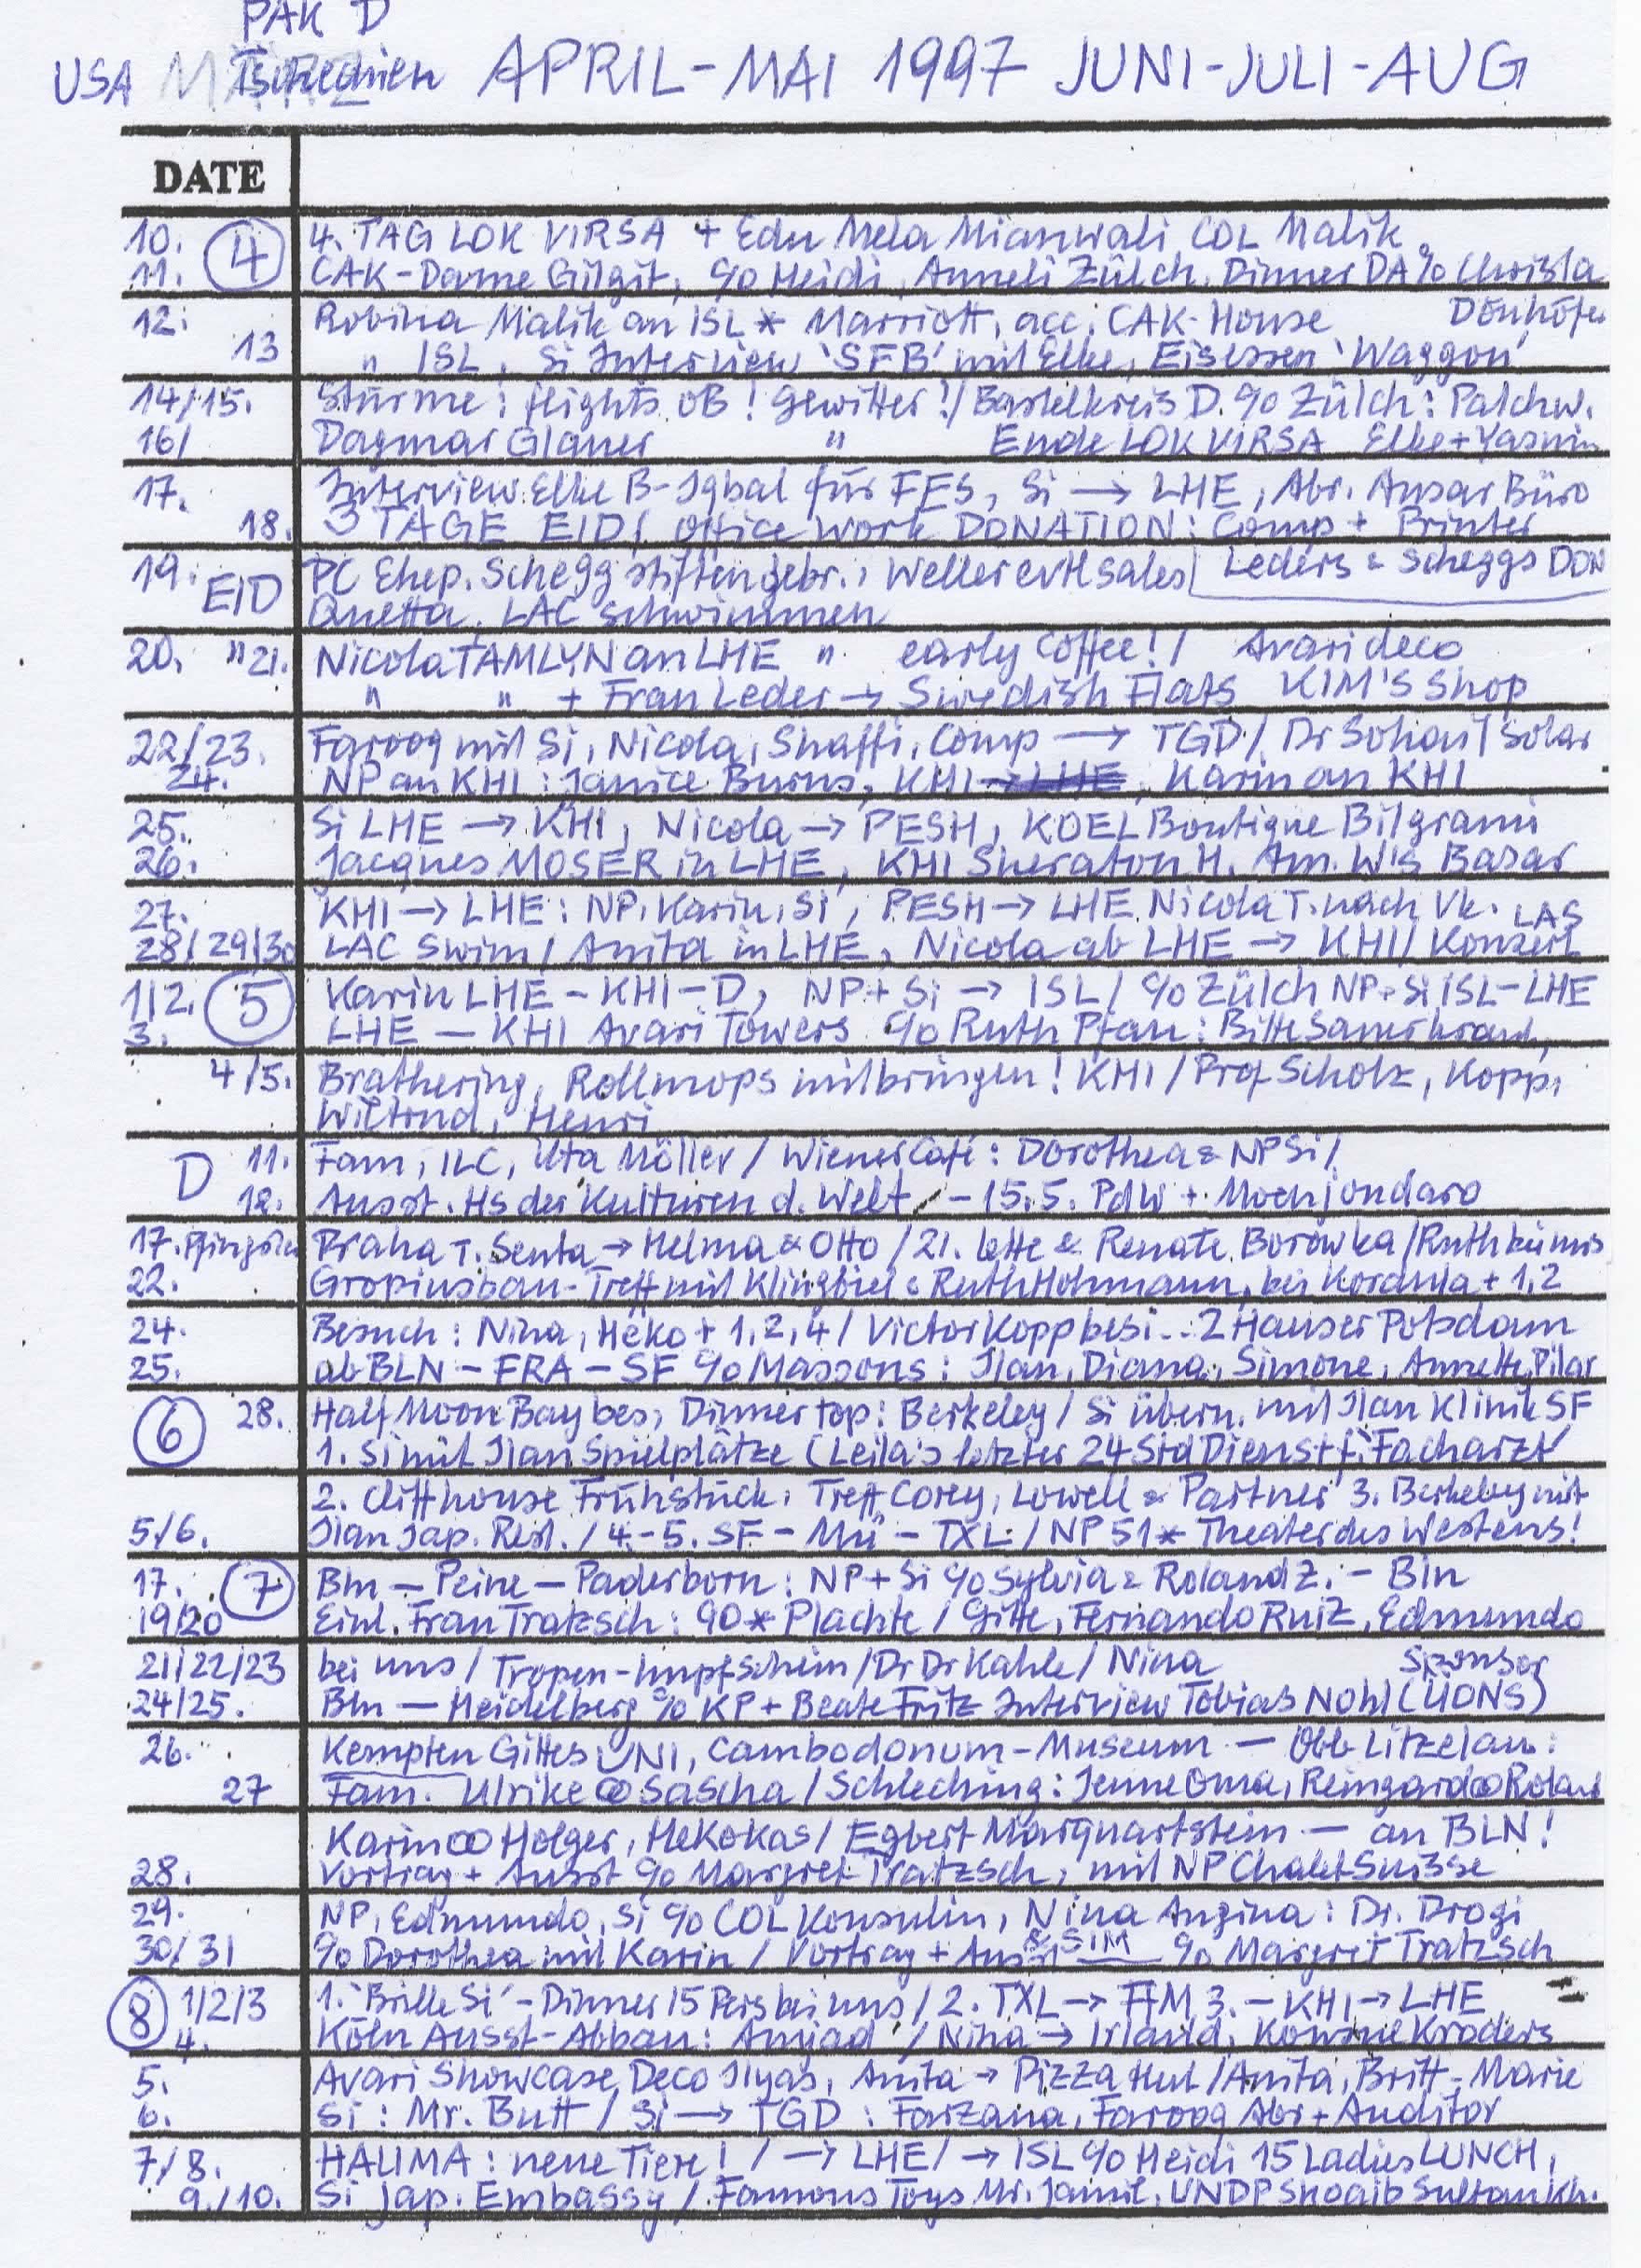 PAK D
USA Tschechien APRIL-MAI 1997 JUNI-JULI-AUG
DATE
10. 4 4. TAG LOK VIRSA + Edu Mela Mianwali COL Malik
11. CAK-Dame Gilgit, % Heidi, Anneli Zülch. Dinner DA % Christa
12. Robina Malik an ISL * Marriott, acc. CAK-House Dönhöfer
13 " ISL, Si Interview 'SFB' mit Elke, Eisessen 'Waggon'
14/15. Stürme: flights OB! Gewitter!/ Bastelkreis D. % Zülch: Patchw.
16/ Dagmar Glaner " Ende LOK VIRSA Elke + Yasmin
17. Interview: Elke B-Iqbal für FES, Si → LHE, Abr. Ansar Büro
18. 3 TAGE EID/ office work DONATION: Comp + Printer
19. EID PC Ehep. Schegg stiften gebr., Weller evtl sales Leders & Scheggs DON
Quetta. LAC schwimmen
20. "21. Nicola TAMLYN an LHE " early coffee!/ Avari deco
" " + Frau Leder → Swedish Flats KIM'S Shop
22/23. Farooq mit Si, Nicola, Shaffi, Comp → TGD/ Dr Sohail Solar
24. NP an KHI: Janice Burns, KHI → LHE, Karin an KHI
25. Si LHE → KHI, Nicola → PESH, KOEL Boutique Bilgrami
26. Jacques MOSER in LHE, KHI Sheraton H. Am. W's Basar
27. KHI → LHE: NP, Karin, Si, PESH → LHE Nicola T. nach Vk. LAS
28/29/30 LAC Swim/ Anita in LHE, Nicola ab LHE → KHI/ Konzert
1/2. 5 Karin LHE - KHI - D, NP + Si → ISL/ % Zülch NP + Si ISL-LHE
3. LHE - KHI Avari Towers % Ruth Pfau: Bitte Sauerkraut,
4/5. Brathering, Rollmops mitbringen! KHI/ Prof Scholz, Kopp,
Wiltrud, Henri
D 11. Fam, ILC, Uta Möller/ Wiener Café: Dorothea & NP Si/
12. Ausst. Hs der Kulturen d. Welt - 15.5. PdW + Moenjondaro
17. Pfingsten Praha T. Senta → Helma & Otto / 21. Lette & Renate Borowka/ Ruth bei uns
22. Gropiusbau-Treff mit Klingbiel & Ruth Hohmann, bei Kordula + 1,2
24. Besuch: Nina, Heko + 1,2,4/ Victor Kopp besi.. 2 Häuser Potsdam
25. ab BLN - FRA - SF % Massons: Ilan, Diana, Simone, Annette, Pilar
6 28. Half Moon Bay bes, Dinner top: Berkeley/ Si übern. mit Ilan Klinik SF
1. Si mit Ilan Spielplätze (Leila's letzter 24 Std Dienst f. Facharzt
2. Cliffhouse Frühstück, Treff Corey, Lowell & Partner 3. Berkeley mit
5/6. Ilan Jap. Rest. / 4.-5. SF - Mü - TXL / NP 51* Theater des Westens!
17. 7 Bln - Peine - Paderborn: NP + Si % Sylvia & Roland Z. - Bln
19/20 Einl. Frau Tratzsch: 90* Plachte / Gitte, Fernando Ruiz, Edmundo
21/22/23 bei uns/ Tropen-Impfschein/ Dr Dr Kahle/ Nina Sponsor
24/25. Bln - Heidelberg % KP + Beate Fritz Interview Tobias Nohl (LIONS)
26. Kempten Gittes UNI, Cambodonum-Museum - Obb Litzelau:
27 Fam. Ulrike ∞ Sascha / Schleching: Jenne Oma, Reingard ∞ Roland
Karin ∞ Holger, HeKoKas/ Egbert Marquartstein - an BLN!
28. Vortrag + Ausst % Margret Tratzsch, mit NP Chalet Suisse
29. NP, Edmundo, Si % COL Konsulin, Nina Angina: Dr. Drogi
30/31 % Dorothea mit Karin / Vortrag + Ausst & SIM % Margret Tratzsch
8 1/2/3 1. 'Brille Si' - Dinner 15 Pers bei uns / 2. TXL → FFM 3. - KHI → LHE
4. Köln Ausst-Abbau: Amjad / Nina → Irland, Kroders
5. Avari Showcase Deco Ilyas, Anita → Pizza Hut / Anita, Britt-Marie
6. Si: Mr. Butt / Si → TGD: Farzana, Farooq Abr + Auditor
7/8. HALIMA: neue Tiere! / → LHE/ → ISL % Heidi 15 Ladies LUNCH,
9./10. Si Jap. Embassy / Famous Toys Mr. Jamil, UNDP Shoaib Sultan Kh.